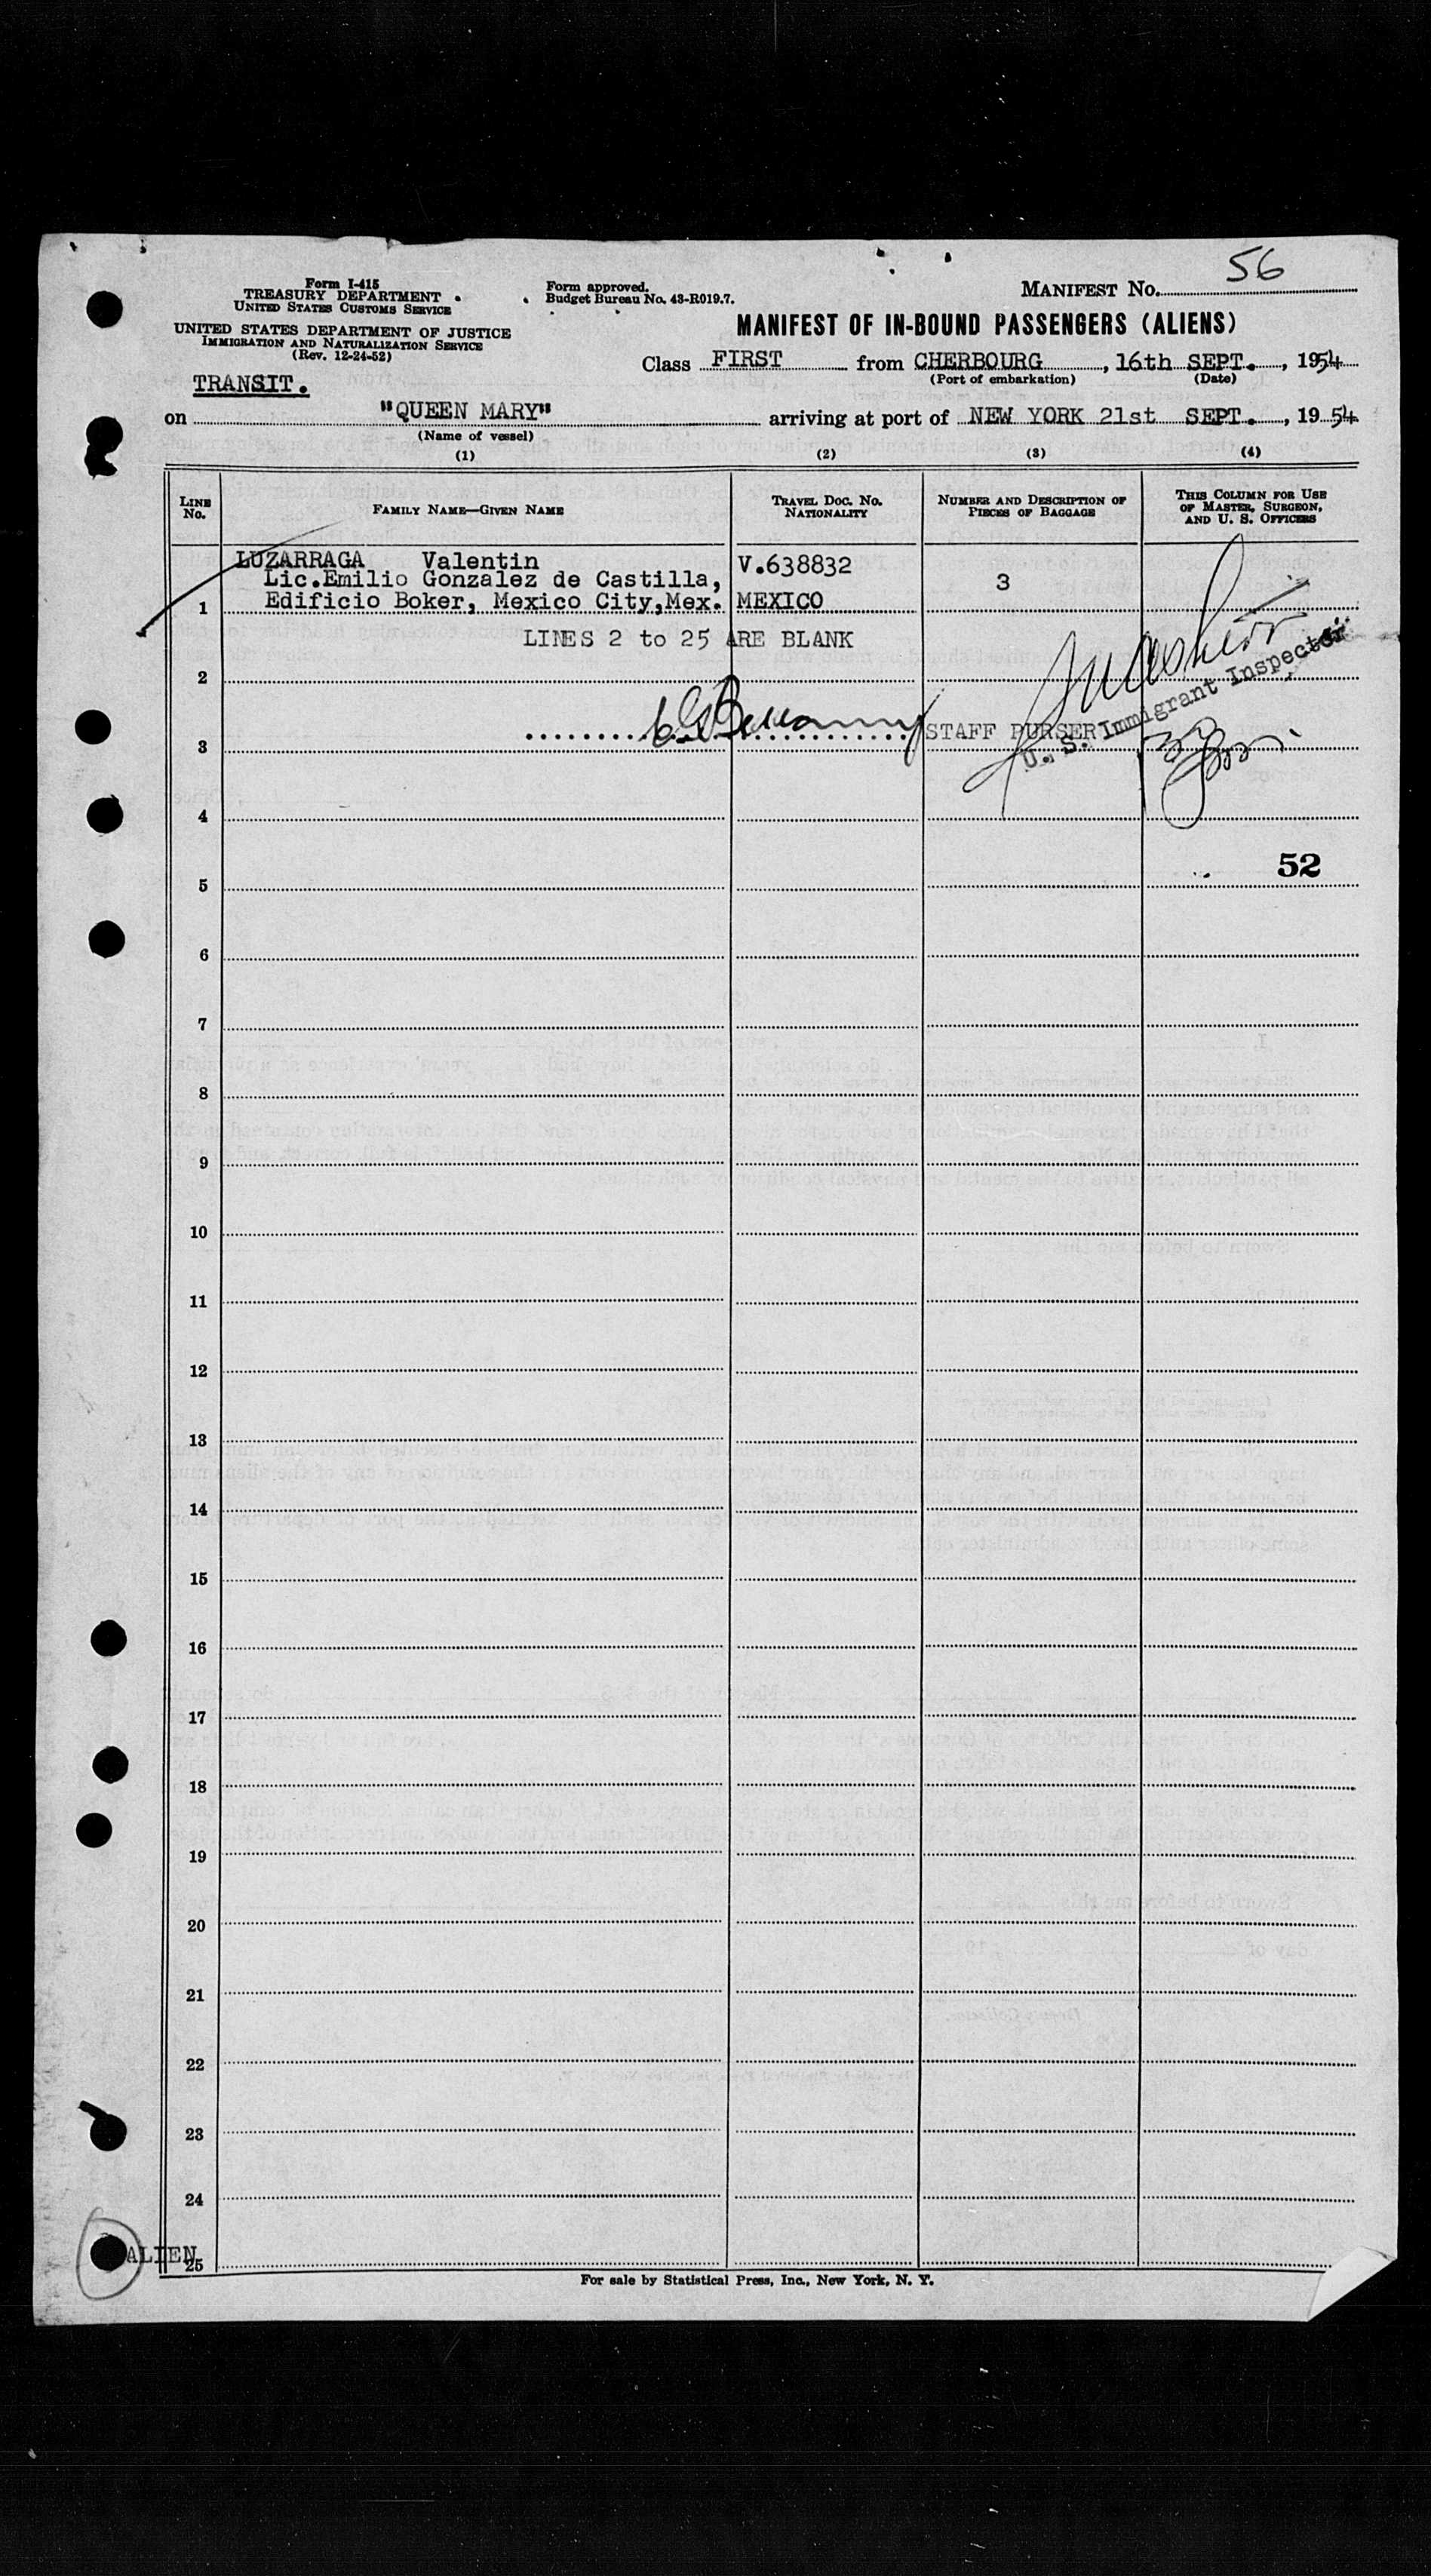 56
Form I-415
TREASURY DEPARTMENT
UNITED STATES CUSTOMS SERVICE
Form approved.
Budget Bureau No. 43-R019.7.
MANIFEST No.
UNITED STATES DEPARTMENT OF JUSTICE
IMMIGRATION AND NATURALIZATION SERVICE
(Rev. 12-24-52)
MANIFEST OF IN-BOUND PASSENGERS (ALIENS)
Class FIRST from CHERBOURG, 16th SEPT., 1954
(Port of embarkation) (Date)
TRANSIT.
on "QUEEN MARY" arriving at port of NEW YORK 21st SEPT., 1954
(Name of vessel)
(1) (2) (3) (4)
LINE No. FAMILY NAME—GIVEN NAME TRAVEL DOC. No. NATIONALITY NUMBER AND DESCRIPTION OF PIECES OF BAGGAGE THIS COLUMN FOR USE OF MASTER, SURGEON, AND U. S. OFFICERS
LUZARRAGA Valentin V.638832
Lic.Emilio Gonzalez de Castilla, 3
1 Edificio Boker, Mexico City,Mex. MEXICO
LINES 2 to 25 ARE BLANK
2
U. S. Immigrant Inspector
3 STAFF PURSER
4
52
5
6
7
8
9
10
11
12
13
14
15
16
17
18
19
20
21
22
23
24
ALIEN
25
For sale by Statistical Press, Inc., New York, N. Y.